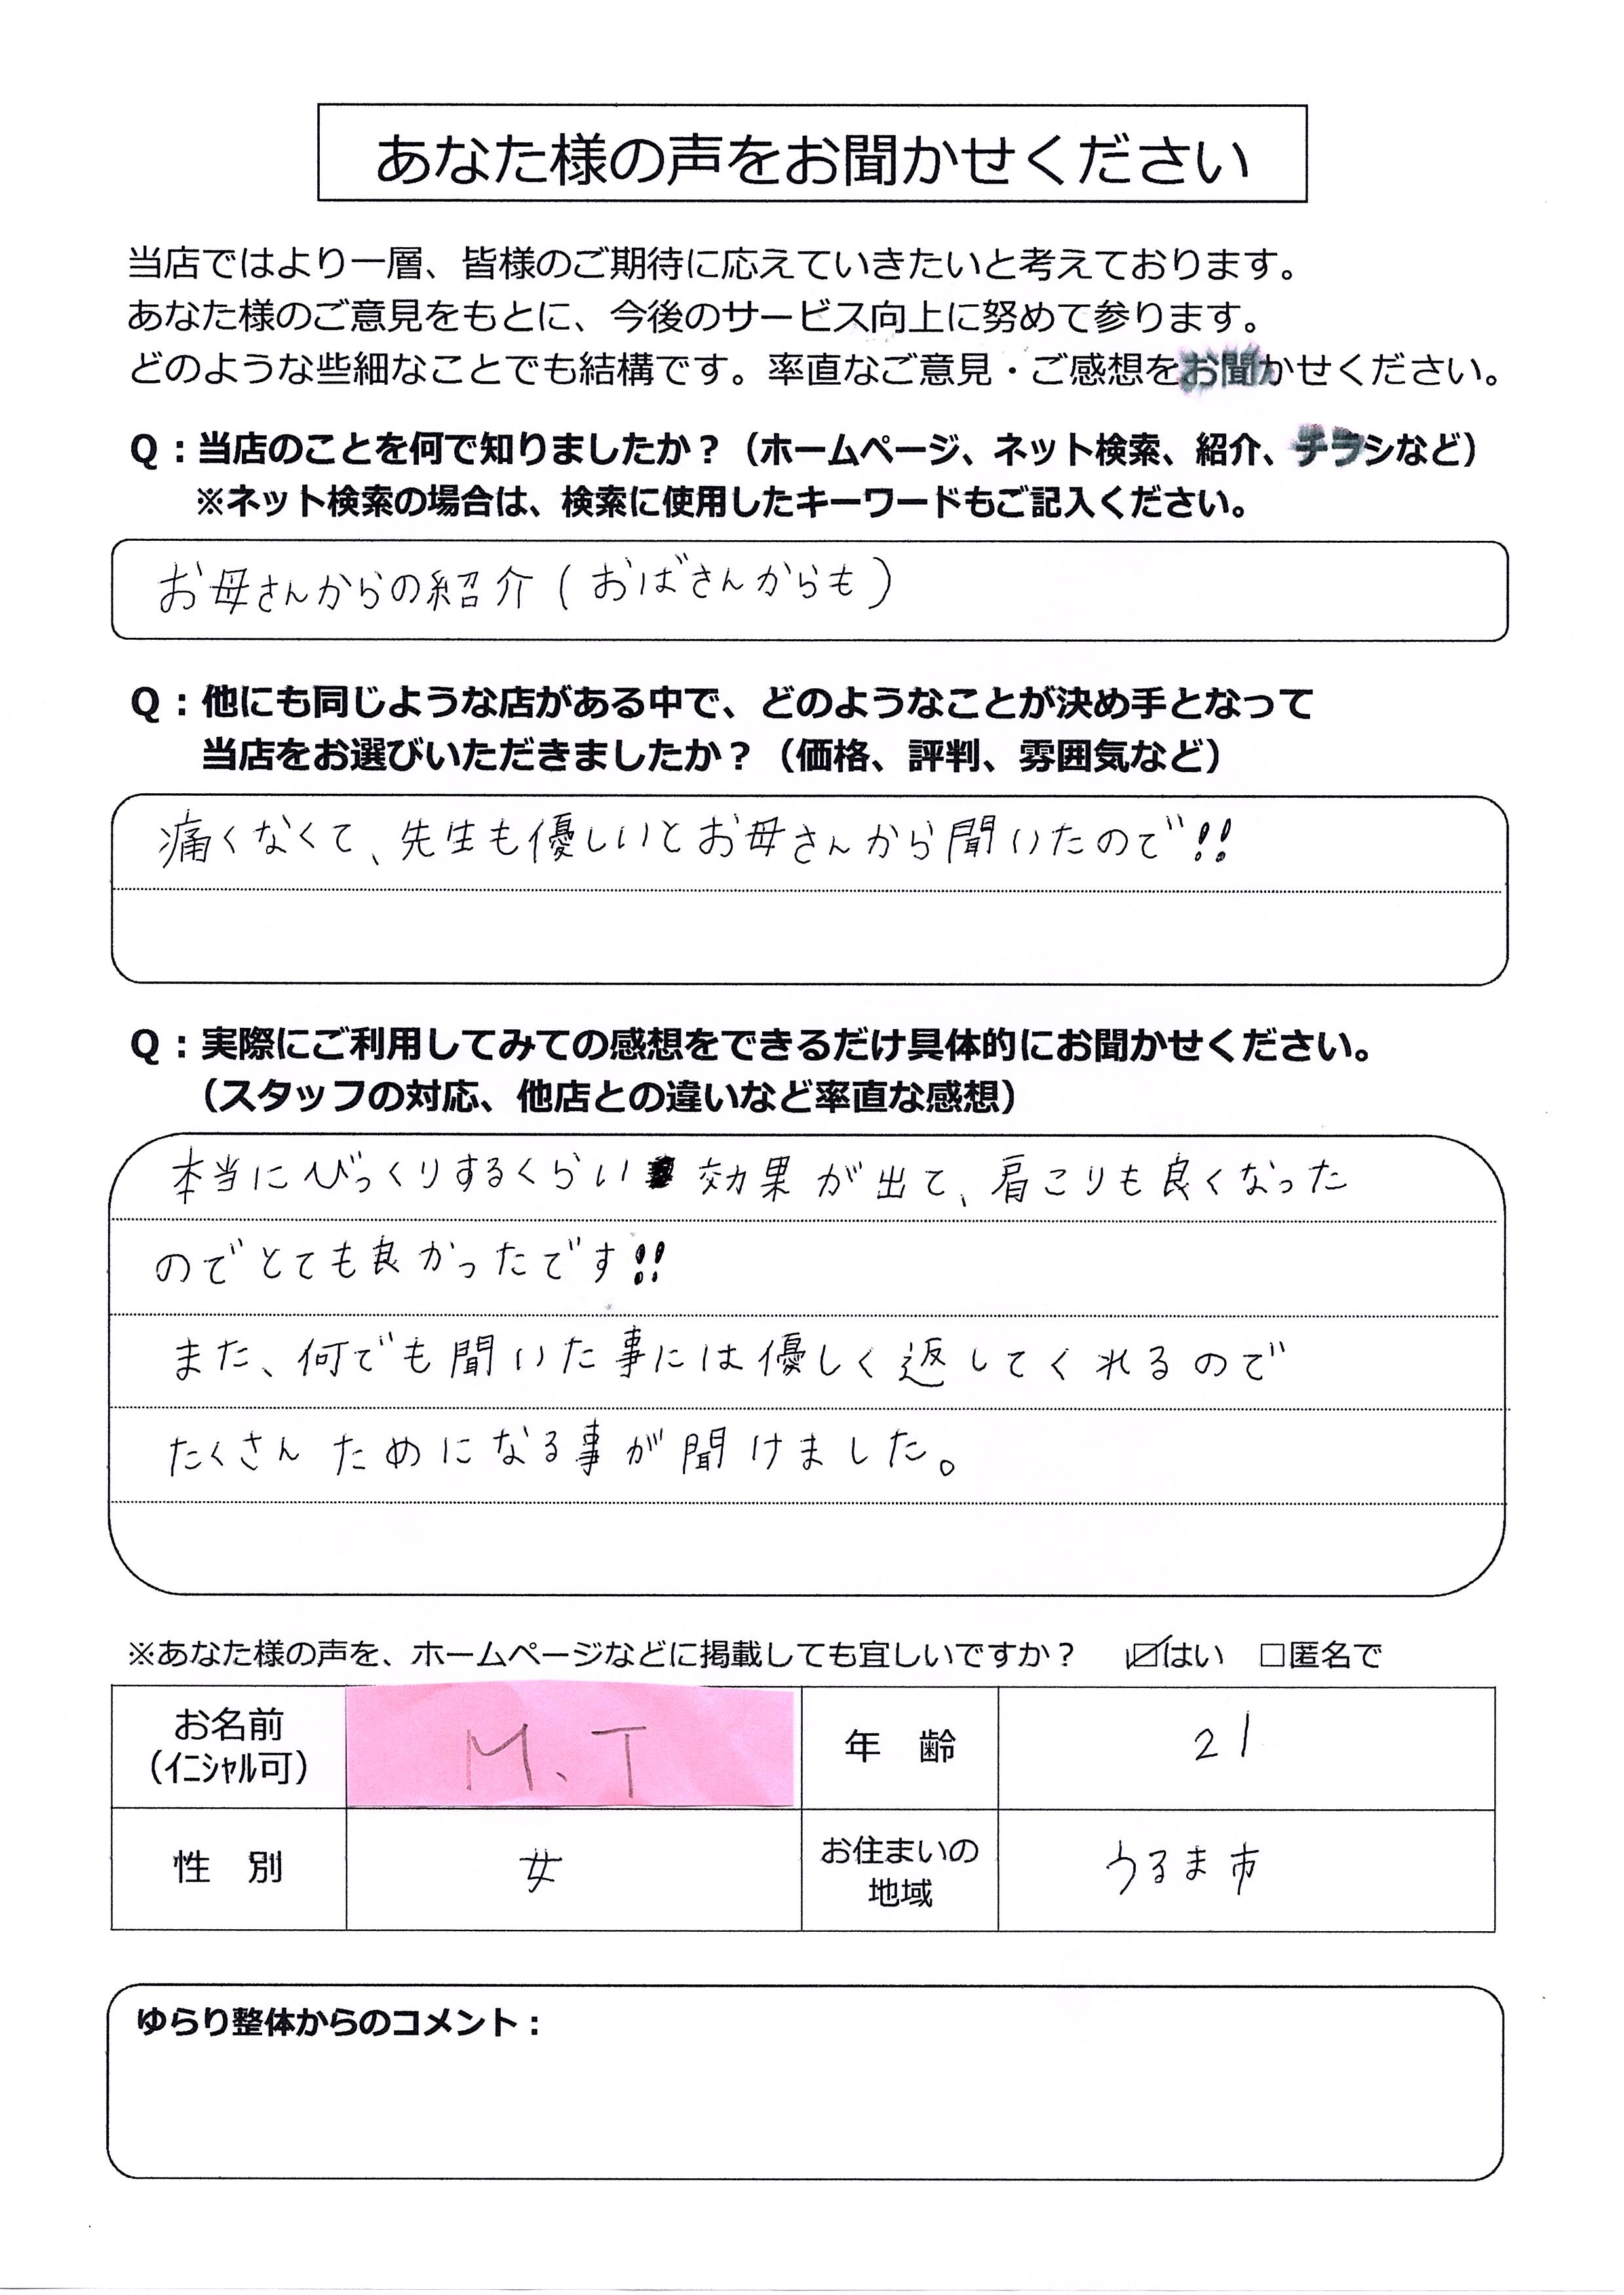 あなた様の声をお聞かせください
当店ではより一層、皆様のご期待に応えていきたいと考えております。
あなた様のご意見をもとに、今後のサービス向上に努めて参ります。
どのような些細なことでも結構です。率直なご意見・ご感想をお聞かせください。
Q：当店のことを何で知りましたか？（ホームページ、ネット検索、紹介、チラシなど）
※ネット検索の場合は、検索に使用したキーワードもご記入ください。
お母さんからの紹介（おばさんからも）
Q：他にも同じような店がある中で、どのようなことが決め手となって
当店をお選びいただきましたか？（価格、評判、雰囲気など）
痛くなくて、先生も優しいとお母さんから聞いたので!!
Q：実際にご利用してみての感想をできるだけ具体的にお聞かせください。
（スタッフの対応、他店との違いなど率直な感想）
本当にびっくりするくらい効果が出て、肩こりも良くなった
のでとても良かったです!!
また、何でも聞いた事には優しく返してくれるので
たくさんためになる事が聞けました。
※あなた様の声を、ホームページなどに掲載しても宜しいですか？ ☑はい □匿名で
お名前 M.T 年 齢 21
（ｲﾆｼｬﾙ可）
性 別 女 お住まいの うるま市
地域
ゆらり整体からのコメント：